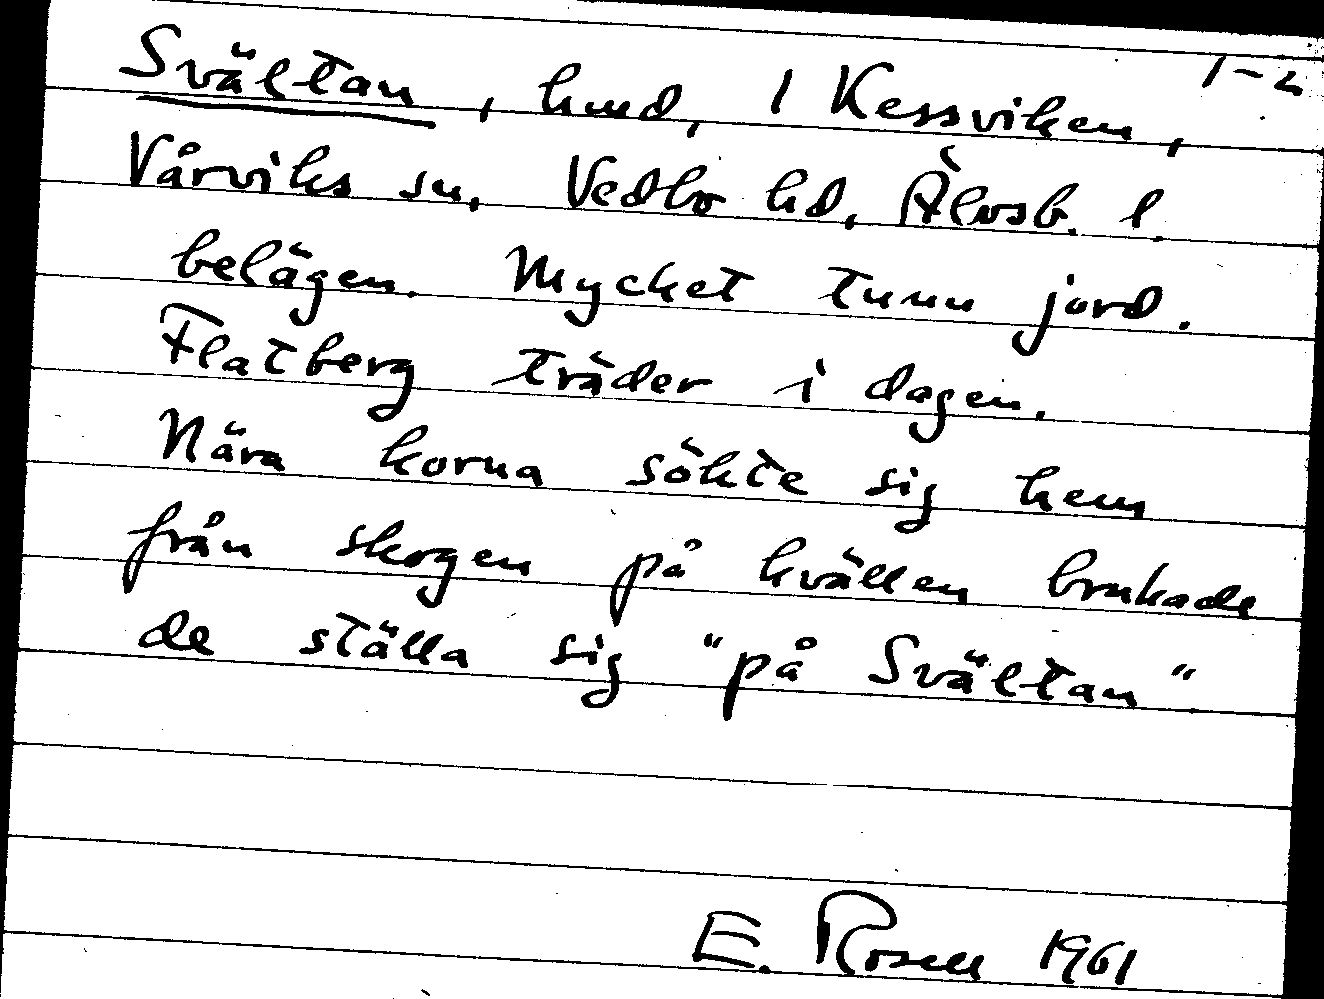 1-2
Svältan, hmd, 1 Kessviken,
Vårviks sn, Vedbo hd, Älvsb. l.
belägen. Mycket tunn jord.
Flatberg träder i dagen.
Nära korna sökte sig hem
från skogen på kvällen brukade
de ställa sig "på Svältan".
E. Rosell 1961